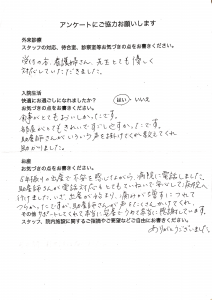 アンケートにご協力お願いします
外来診療
スタッフの対応、待合室、診察室等お気づきの点をお書きください。
受付の方、看護師さん、先生とても優しく
対応していただきました。
入院生活
快適にお過ごしになれましたか？ はい ・ いいえ
お気づきの点をお書きください。
食事がとてもおいしかったです。
部屋がとてもきれいですごしやすかったです。
助産師さんがいろいろ声をお掛けてくれ教えてくれ
助かりました。
お産
お気づきの点をお書きください。
5年振りの出産で不安を感じながら、病院に電話しました。
助産師さんが電話対応もとてもていねいで安心して病院へ
行けました。いざ、出産が始まり、痛みが
つらかったですが、助産師さんが声をたくさんかけてくれ、
サポートしてくれて本当に
その他
スタッフ、院内施設に関するご指摘やご要望などご自由にお書きください。
ありがとうございました